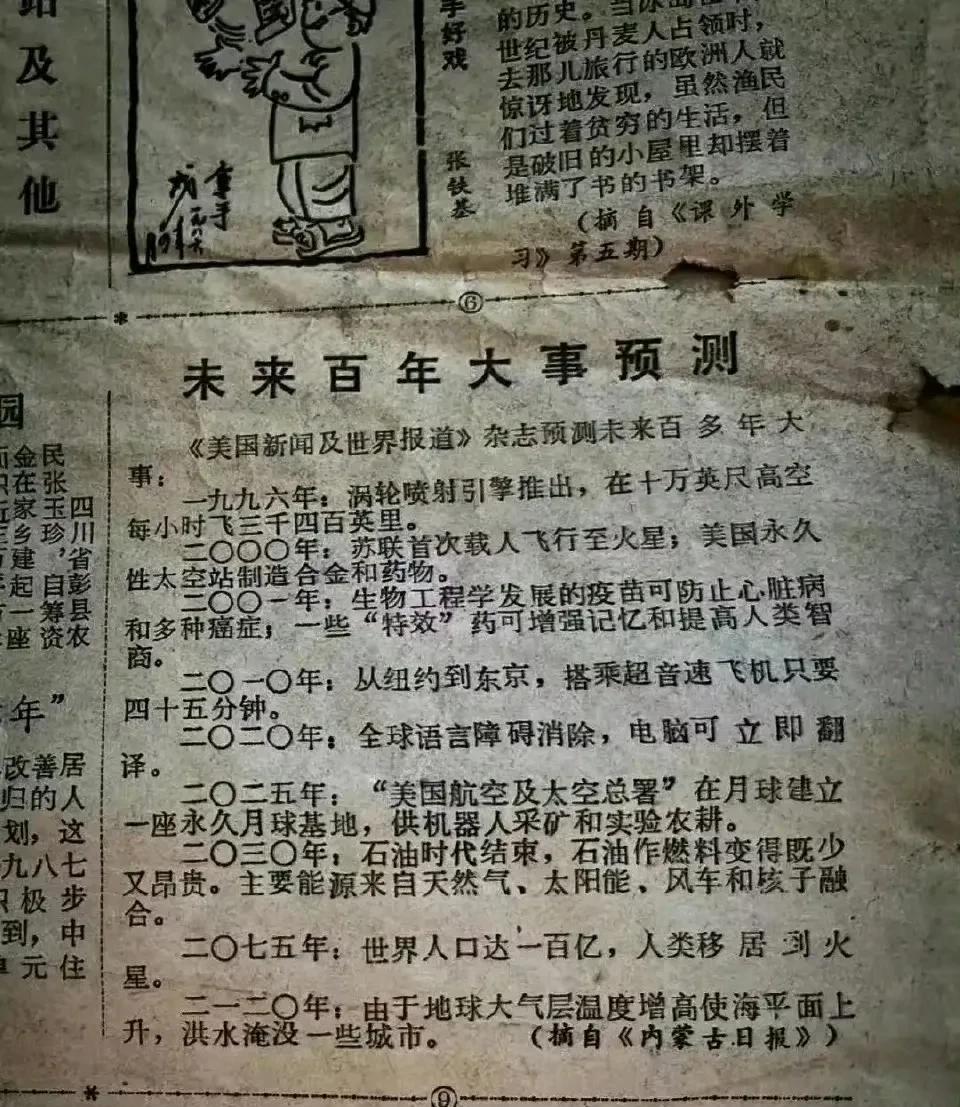 站及其他
拿手好戏
张铁基
拿手
一九八六
世纪被丹麦人占领时，
去那儿旅行的欧洲人就
惊讶地发现，虽然渔民
们过着贫穷的生活，但
是破旧的小屋里却摆着
堆满了书的书架。
（摘自《课外学
习》第五期）
⑥
未来百年大事预测
《美国新闻及世界报道》杂志预测未来百多年大
事：
一九九六年：涡轮喷射引擎推出，在十万英尺高空
每小时飞三千四百英里。
二〇〇〇年：苏联首次载人飞行至火星；美国永久
性太空站制造合金和药物。
二〇〇一年：生物工程学发展的疫苗可防止心脏病
和多种癌症；一些“特效”药可增强记忆和提高人类智
商。
二〇一〇年：从纽约到东京，搭乘超音速飞机只要
四十五分钟。
二〇二〇年：全球语言障碍消除，电脑可立即翻
译。
二〇二五年：“美国航空及太空总署”在月球建立
一座永久月球基地，供机器人采矿和实验农耕。
二〇三〇年：石油时代结束，石油作燃料变得既少
又昂贵。主要能源来自天然气、太阳能、风车和核子融
合。
二〇七五年：世界人口达一百亿，人类移居到火
星。
二一二〇年：由于地球大气层温度增高使海平面上
升，洪水淹没一些城市。（摘自《内蒙古日报》）
⑨
园
四川省彭县农
民张玉珍，自筹资
金在家乡建起一座
年”
改善居
归的人
划，这
九八七
积极步
到，中
单元住